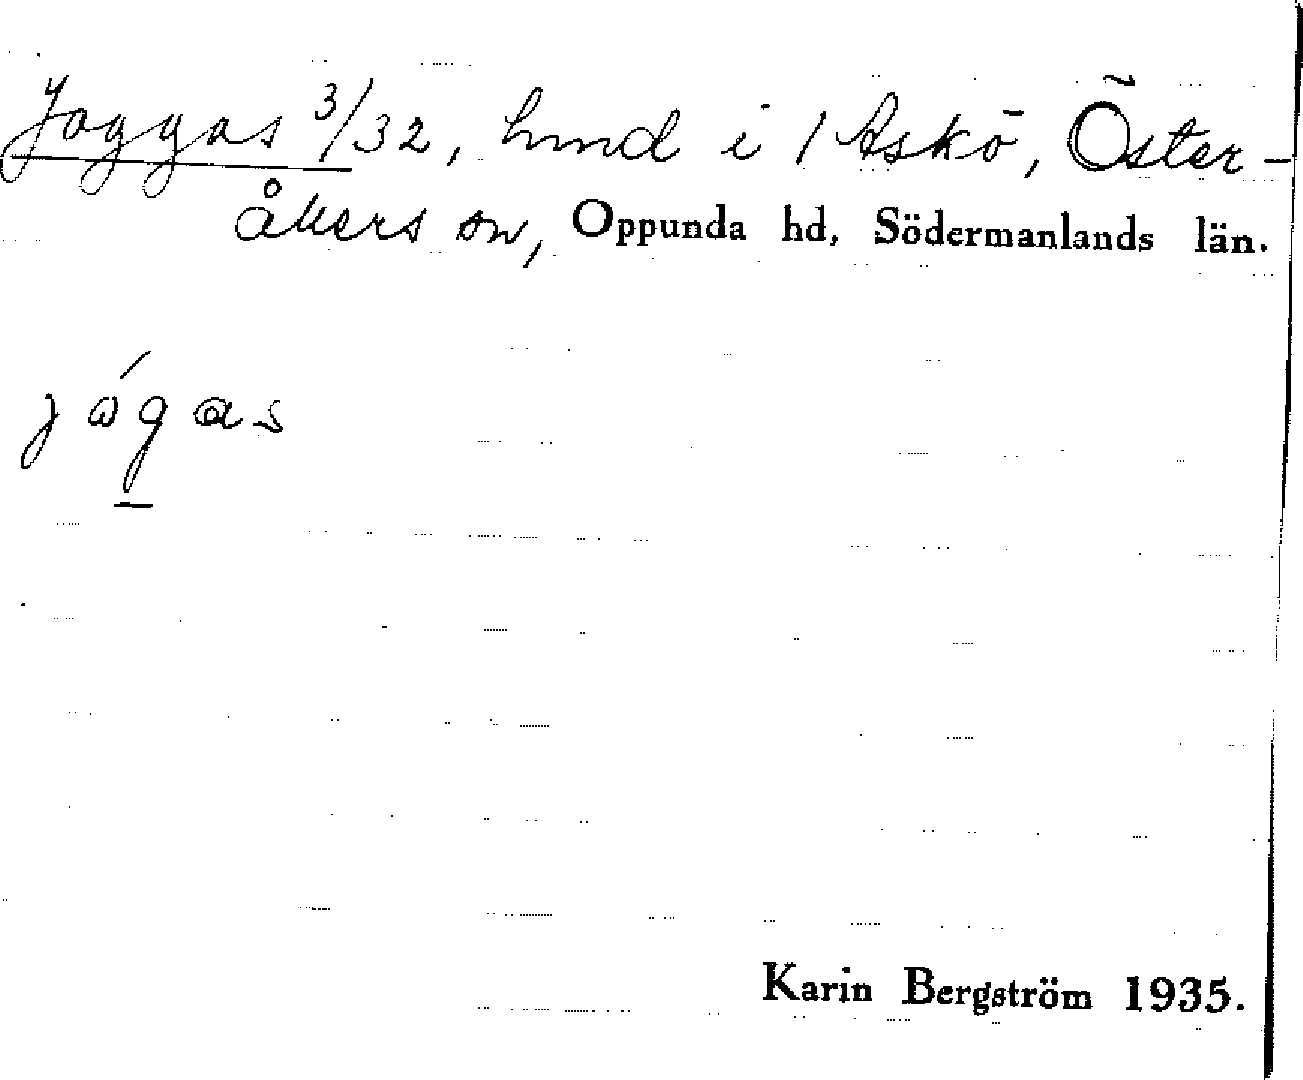 Joggas 3/32, hmd i 1 Askö, Öster-
åkers sn, Oppunda hd, Södermanlands län.
jógas
Karin Bergström 1935.